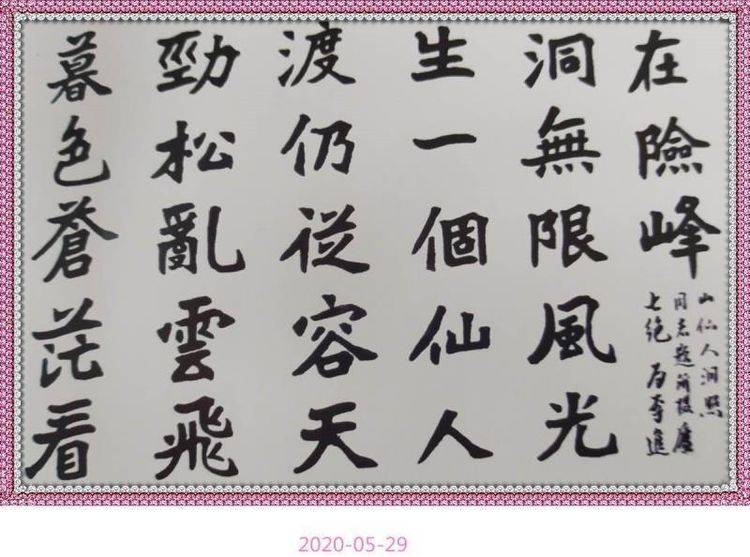 暮色蒼茫看
勁松亂雲飛
渡仍從容天
生一個仙人
洞無限風光
在險峰
七绝 为李進
同志题所摄廬
山仙人洞照
2020-05-29